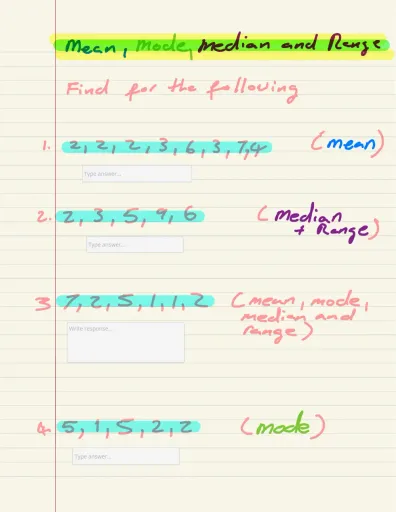 Mean, Mode, Median and Range
Find for the following
1. 2, 2, 2, 3, 6, 3, 7, 4 (mean)
Type answer...
2. 2, 3, 5, 9, 6 (Median
+ Range)
Type answer...
3 7, 2, 5, 1, 1, 2 (mean, mode,
median and
range)
Write response...
4. 5, 1, 5, 2, 2 (mode)
Type answer...